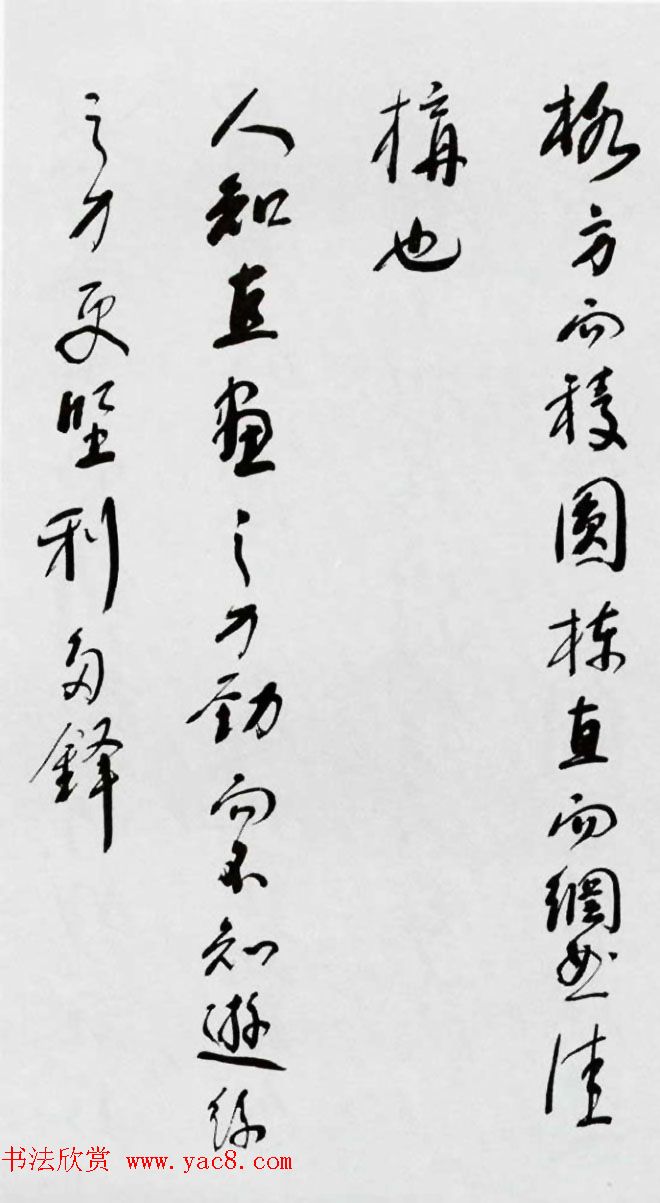 桷方而稜圓棟直而網曲佳
構也
人知直畫之力勁而不知遊絲
之力更堅利多鋒
书法欣赏 www.yac8.com